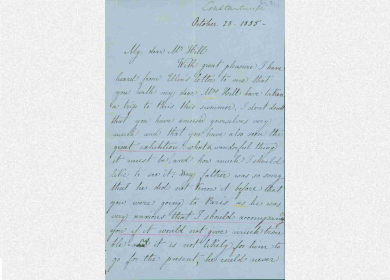 Constantinople
October 23 - 1855 -
My dear Mr Hill
With great pleasure I have
heard from letter to me that
you with my dear Mrs Hill have taken
a trip to Paris this summer, I don't doubt
that you have amused yourselves very
much and that you have also seen the
great exhibition what a wonderful thing
it must be and how much I should
like to see it; my father was so sorry
that he did not know it before that
you were going to Paris as he was
very anxious that I should accompany
you if it would not give much trou
ble it is not likely for him to
go for the present, he could never